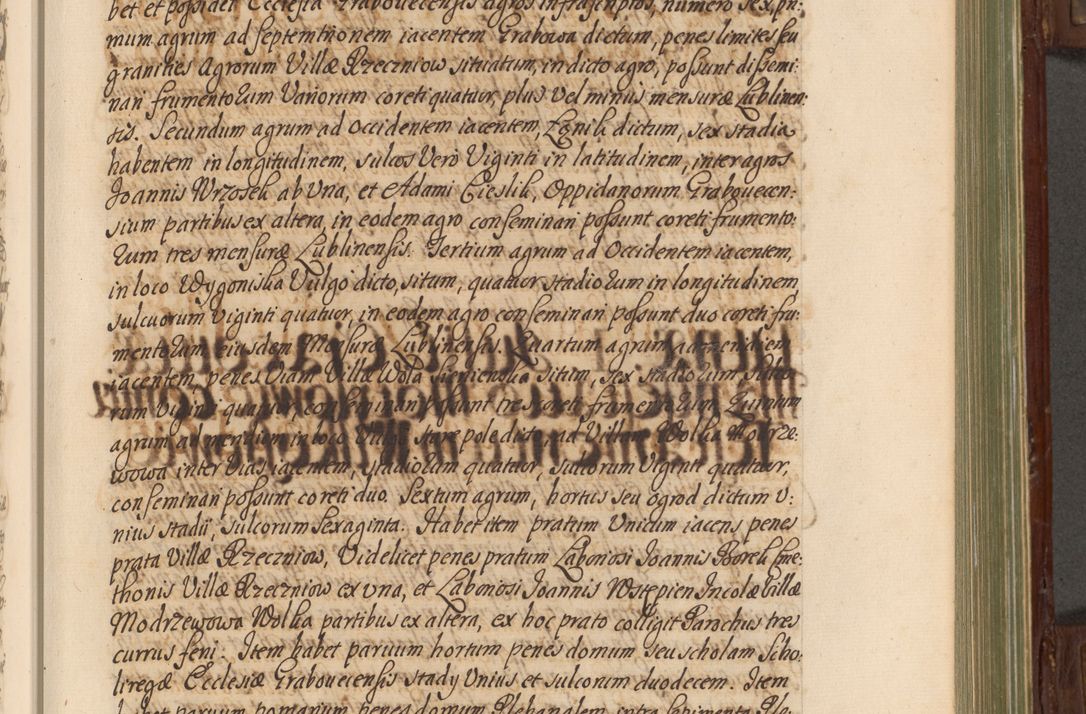 bet et possidet Ecclesia Grabouecensis agros infrascriptos, numero sex, pri:
mum agrum ad septemtrionem iacentem Grabowa dictum, penes limites seu
granities Agrorum Villæ Rzeczniow situatum, in dicto agro, possunt dissemi:
nari frumentorum Variorum coreti quatuor, plus vel minus mensuræ Lublinen:
sis. Secundum agrum ad Occidentem iacentem, Zgnik dictum, sex stadia
habentem in longitudinem, sulcos Vero Viginti in latitudinem, inter agros
Joannis Wrzosek ab Vna, et Adami Cieslik, Oppidanorum Grabouecen:
sium partibus ex altera, in eodem agro conseminari possunt coreti frumento:
rum tres mensuræ Lublinensis. Tertium agrum ad Occidentem iacentem,
in loco Wygoniska Vulgo dicto, situm, quatuor stadiorum in longitudinem,
sulcuorum Viginti quatuor, in eodem agro conseminari possunt duo coreti fru:
mentorum eiusdem Mensuræ Lublinensis. Quartum agrum ad meridiem
iacentem penes Viam Villæ Wola situm, sex stadiorum, sulco:
rum Viginti quatuor, conseminari possunt tres coreti frumentorum. Quintum
agrum ad meridiem in loco Vulgo stare pole dicto, ad Villam Wolka Modrze:
wowa inter Vias iacentem, stadiorum quatuor, sulcorum Viginti quatuor,
conseminari possunt coreti duo. Sextum agrum, hortus seu ogrod dictum V:
nius stadii, sulcorum sexaginta. Habet item pratum Unicum iacens penes
prata Villæ Rzeczniow, Videlicet penes pratum Laboriosi Joannis Borek Cme:
thonis Villæ Rzeczniow ex vna, et Laboriosi Joannis Wstępien Incolæ Villæ
Modrzewowa Wolka partibus ex altera, ex hoc prato colligit Parochus tres
currus feni. Item habet paruum hortum penes domum seu scholam Scho:
liregæ Ecclesiæ Grabouecensis stady Unius et sulcorum duodecem. Item
habet paruum pomarium penes domum Plebanalem, intra sepimenta Ple: